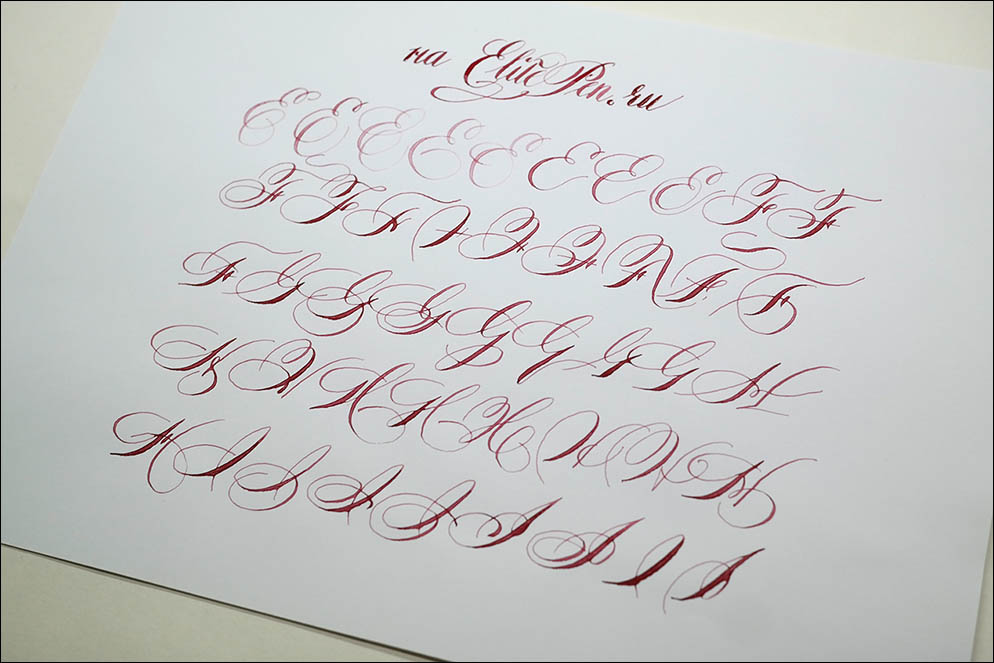 на ElitePen.ru
E E E E E E E E F F
F F F F F F F F F
F G G G G G G G H
H H H H H H H H
H I I I I I I I I